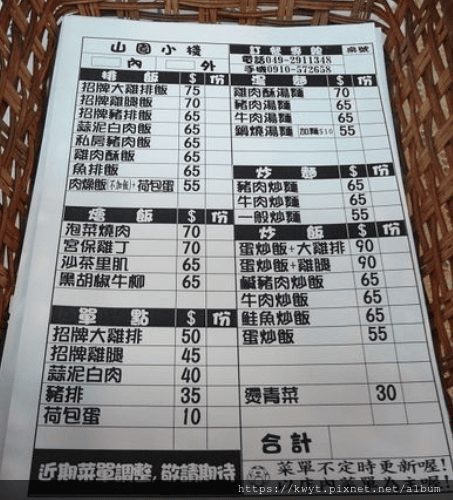 山園小棧
內 外
排飯 $ 份
招牌大雞排飯 75
招牌雞腿飯 70
招牌豬排飯 65
蒜泥白肉飯 65
私房豬肉飯 65
雞肉酥飯 65
魚排飯 65
肉燥飯(不加飯)+荷包蛋 55
燴飯 $ 份
泡菜燒肉 70
宮保雞丁 70
沙茶里肌 65
黑胡椒牛柳 65
單點 $ 份
招牌大雞排 50
招牌雞腿 45
蒜泥白肉 40
豬排 35
荷包蛋 10
近期菜單調整,敬請期待
訂餐專線 桌號
電話049-2911348
手機0910-572658
湯麵 $ 份
雞肉酥湯麵 70
豬肉湯麵 65
牛肉湯麵 65
鍋燒湯麵 加麵$10 55
炒麵 $ 份
豬肉炒麵 65
牛肉炒麵 65
一般炒麵 55
炒飯 $ 份
蛋炒飯+大雞排 90
蛋炒飯+雞腿 90
鹹豬肉炒飯 65
牛肉炒飯 65
鮭魚炒飯 65
蛋炒飯 55
燙青菜 30
合計
菜單不定時更新喔!
https://kwyt.pixnet.net/album